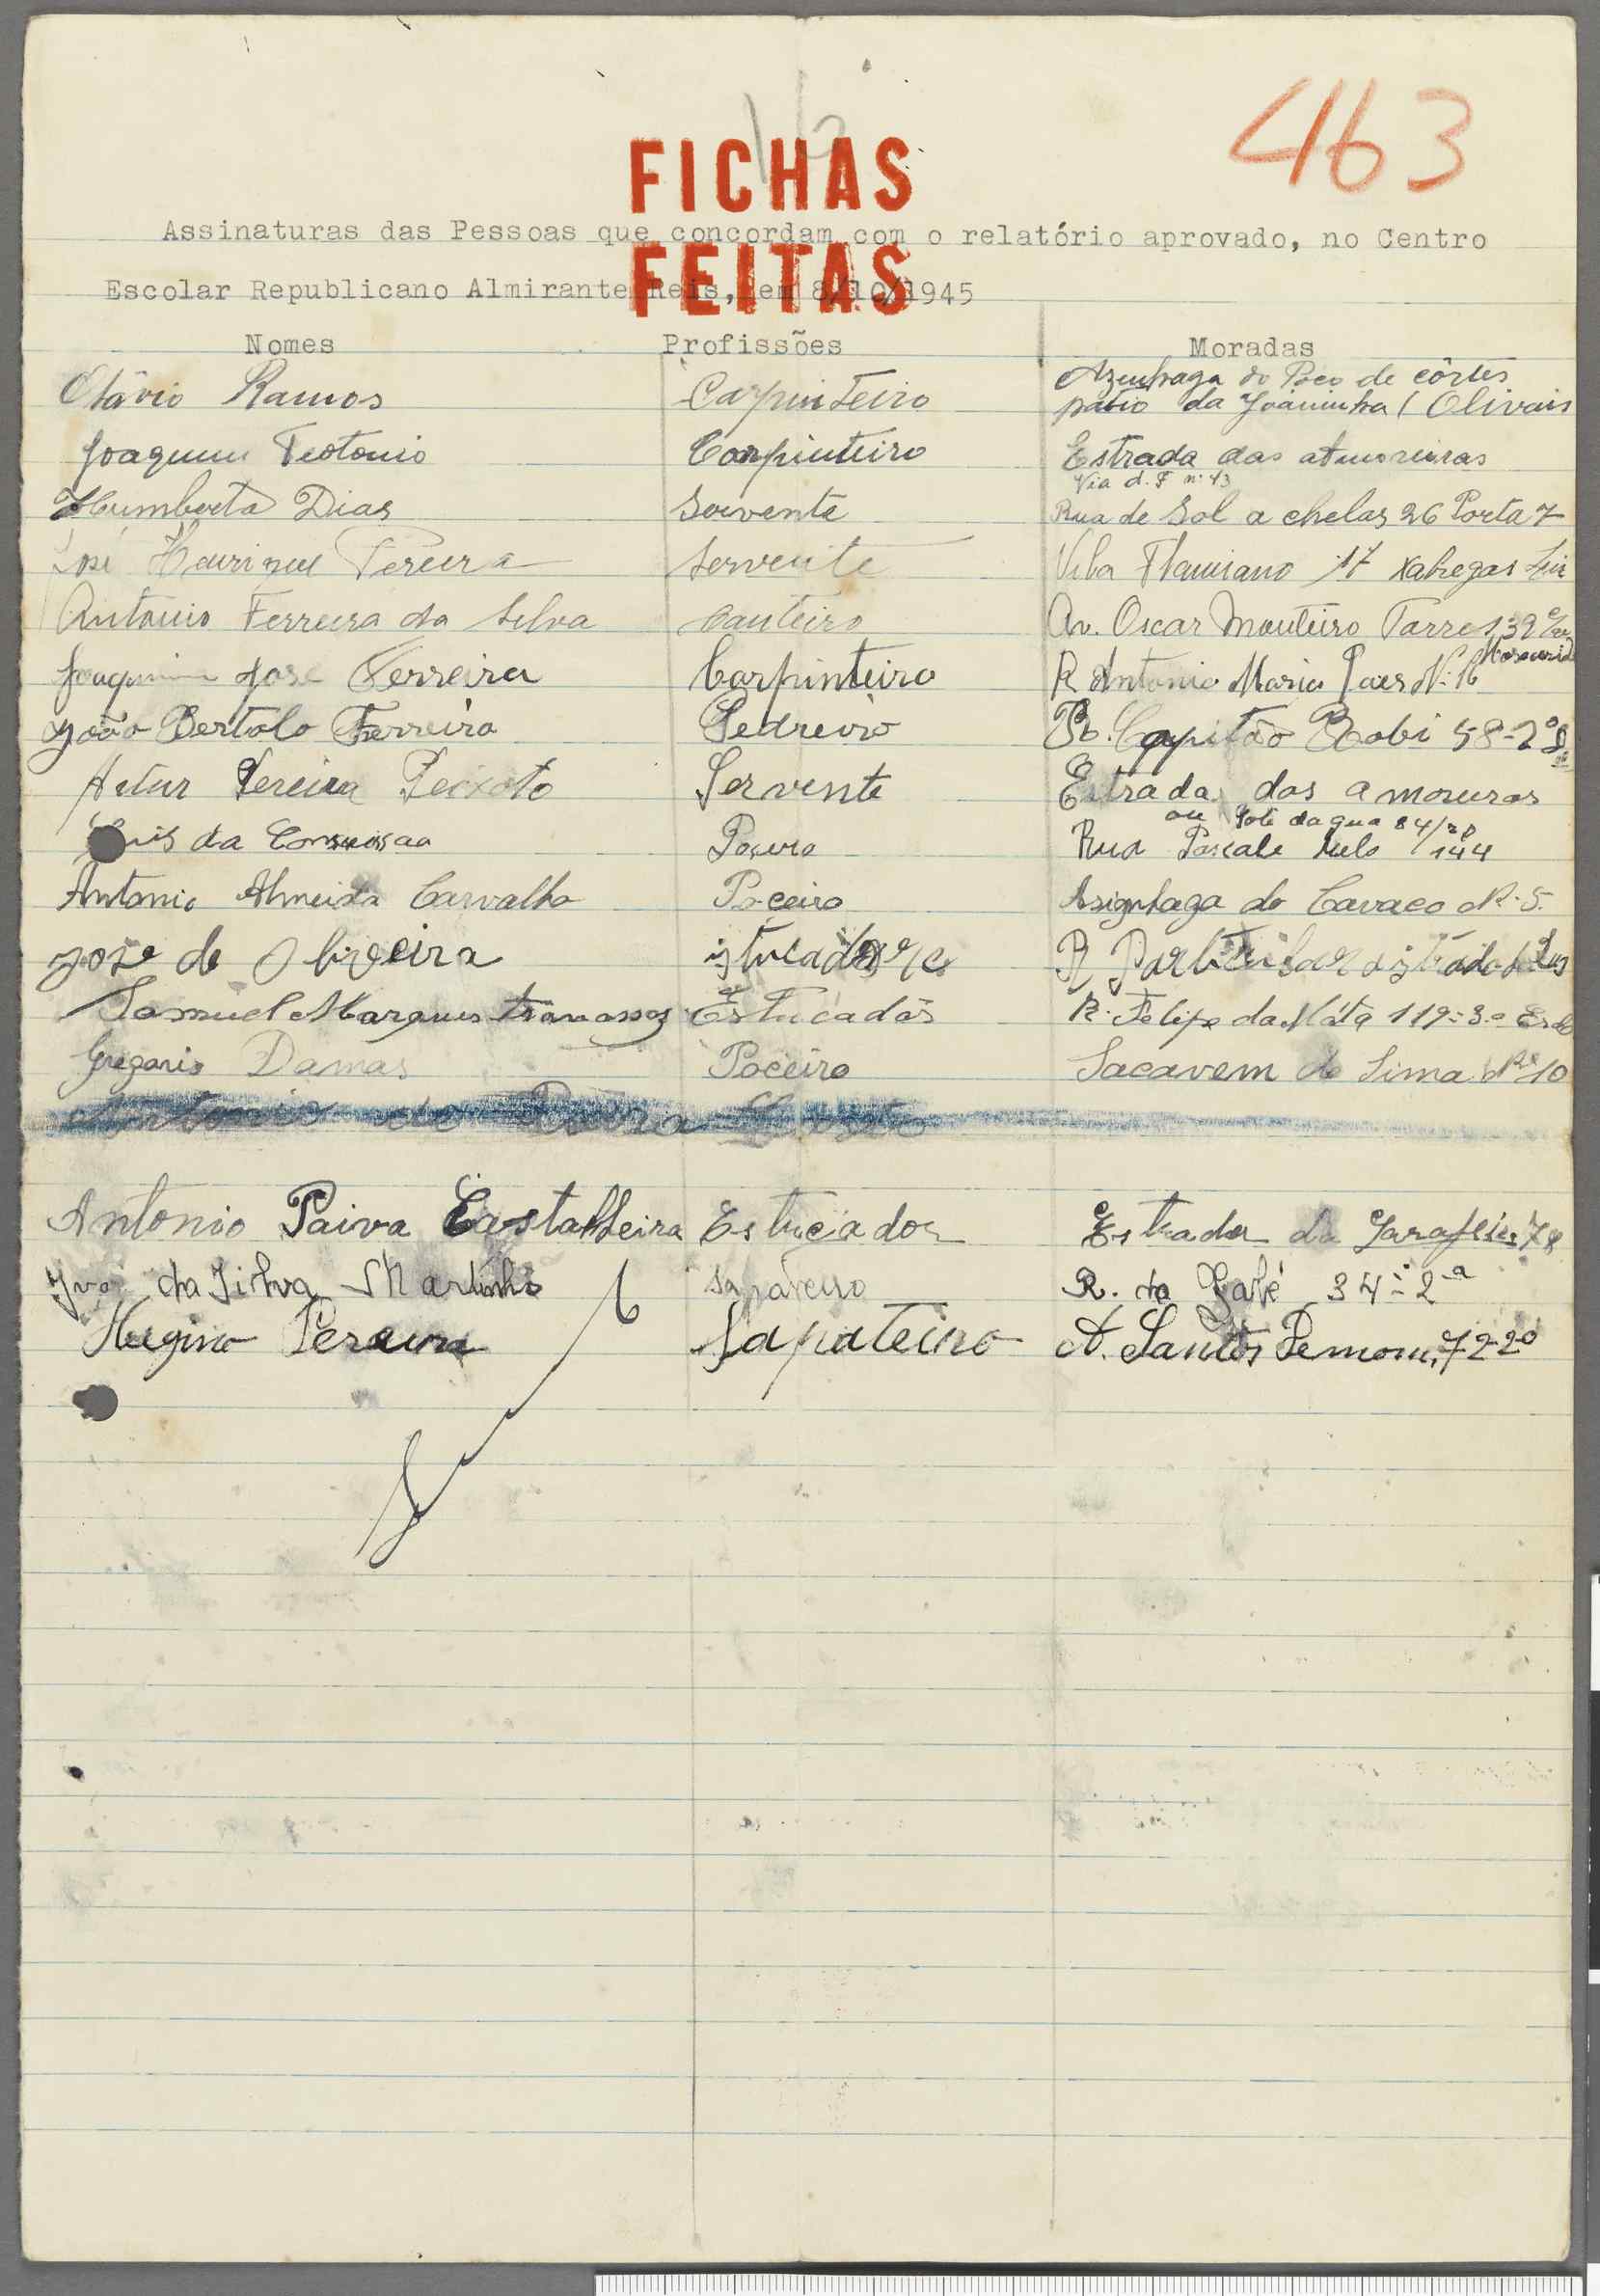 463
FICHAS
Assinaturas das Pessoas que concordam com o relatório aprovado, no Centro
FEITAS
Escolar Republicano Almirante Reis, em 8/10/1945
Nomes Profissões Moradas
Otávio Ramos Carpinteiro Azenhaga do Poço de côrtes
pátio da Joaninha (Olivais
Joaquim Teotonio Carpinteiro Estrada das amoreiras
Via d. F nº 43
Humberto Dias Servente Rua de Sol a chelas 26 Porta 7
José Henrique Pereira Servente Vila Flamiano 17 Xabregas
António Ferreira da Silva Canteiro Av. Oscar Monteiro Torres 39
Joaquim José Ferreira Carpinteiro R Antonio Maria Paes Nº 16
João Bertolo Ferreira Pedreiro R. Capitão Robi 58-2º
Artur Pereira Peixoto Servente Estrada das amoreiras
ou
da Conceissao Poceiro Rua Pascale melo 144
Antonio Almeida Carvalho Poceiro Asignhaga do Cavaco Nº 5.
José de Oliveira R Particular
Samuel Marques travassos Estucadôs R. Felipe da Máta 119-3º
Gregorio Damas Poceiro Sacavem de Sima Nº 10
Antonio de Paiva
Antonio Paiva Castalheira Estucador Estrada da
Ivo da Silva Martinho Sapateiro R. da 34-2º
Higino Pereira Sapateiro A. Santos 72-2º